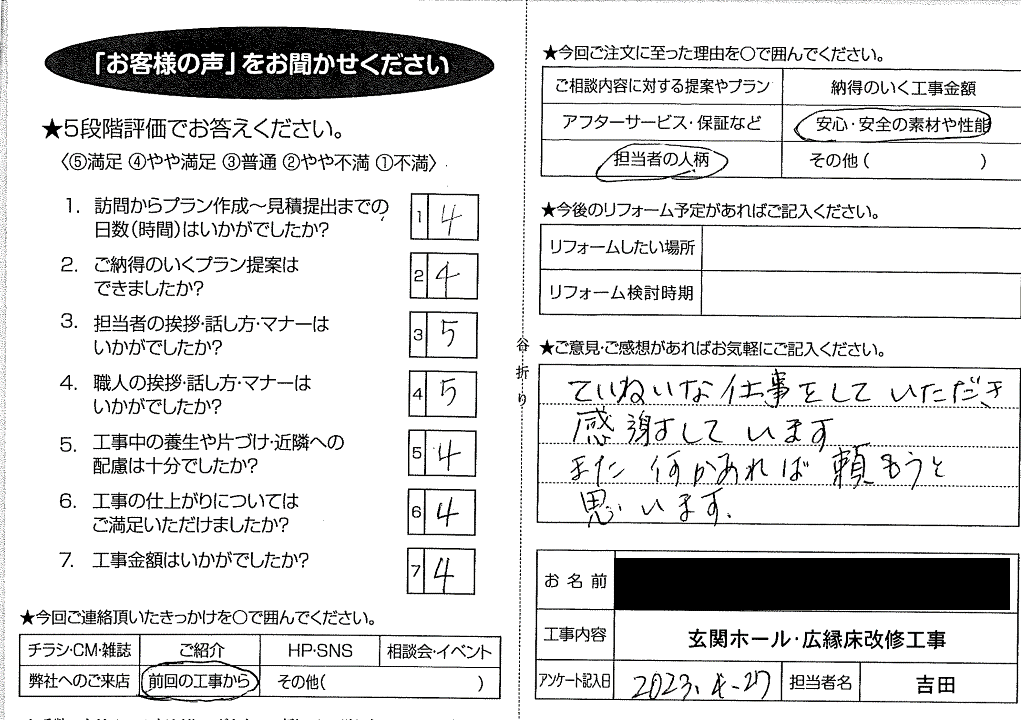 「お客様の声」をお聞かせください
★5段階評価でお答えください。
〈⑤満足 ④やや満足 ③普通 ②やや不満 ①不満〉
1. 訪問からプラン作成〜見積提出までの
日数(時間)はいかがでしたか?
1 4
2. ご納得のいくプラン提案は
できましたか?
2 4
3. 担当者の挨拶・話し方・マナーは
いかがでしたか?
3 5
4. 職人の挨拶・話し方・マナーは
いかがでしたか?
4 5
5. 工事中の養生や片づけ・近隣への
配慮は十分でしたか?
5 4
6. 工事の仕上がりについては
ご満足いただけましたか?
6 4
7. 工事金額はいかがでしたか?
7 4
★今回ご連絡頂いたきっかけを○で囲んでください。
チラシ・CM・雑誌 ご紹介 HP・SNS 相談会・イベント
弊社へのご来店 前回の工事から その他( )
谷折り
★今回ご注文に至った理由を○で囲んでください。
ご相談内容に対する提案やプラン 納得のいく工事金額
アフターサービス・保証など 安心・安全の素材や性能
担当者の人柄 その他( )
★今後のリフォーム予定があればご記入ください。
リフォームしたい場所
リフォーム検討時期
★ご意見・ご感想があればお気軽にご記入ください。
ていねいな仕事をしていただき
感謝しています
また何かあれば頼もうと
思います.
お名前
工事内容 玄関ホール・広縁床改修工事
アンケート記入日 2023.4-27 担当者名 吉田